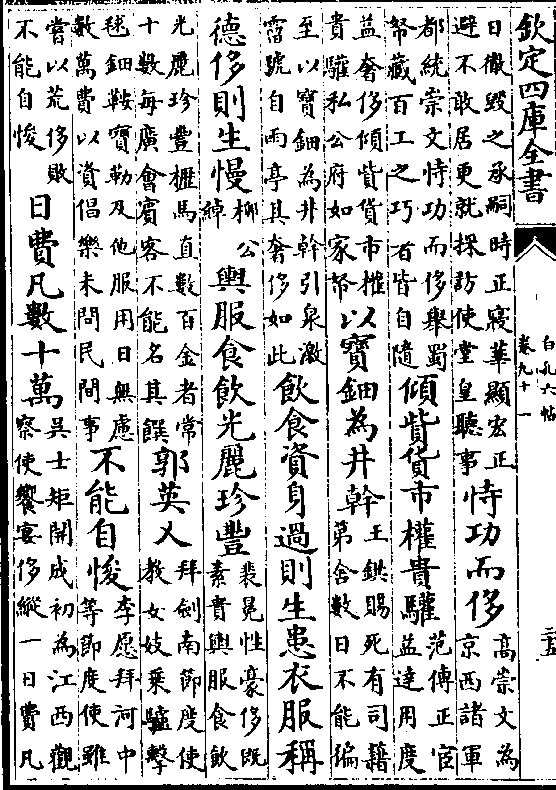 欽定四庫全書
白孔六帖
卷九十一
二五
日徹毀之承嗣時正寢華顯宏正
避不敢居更就採訪使堂皇聽事
恃功而侈
高崇文為
京西諸軍
都統崇文恃功而侈舉蜀
帑藏百工之巧者皆自隨
傾貲貨市權貴驩
范傳正宦
益達用度
益奢侈傾貲貨市權
貴驩私公府如家帑
以寶鈿為井幹
王鉷賜死有司籍
第舍數日不能徧
至以寶鈿為井幹引泉激
霤號自雨亭其奢侈如此
飲食資身過則生患衣服稱
德侈則生慢
柳公
綽
輿服食飲光麗珍豐
裴冕性豪侈既
素貴輿服食飲
光麗珍豐櫪馬直數百金者常
十數每廣會賓客不能名其饌
郭英乂
拜劍南節度使
教女妓乘驢擊
毬鈿鞍寶勒及他服用日無慮
數萬費以資倡樂未問民間事
不能自悛
李愿拜河中
等節度使雖
嘗以荒侈敗
不能自悛
日費凡數十萬
吳士矩開成初為江西觀
察使饗宴侈縱一日費凡